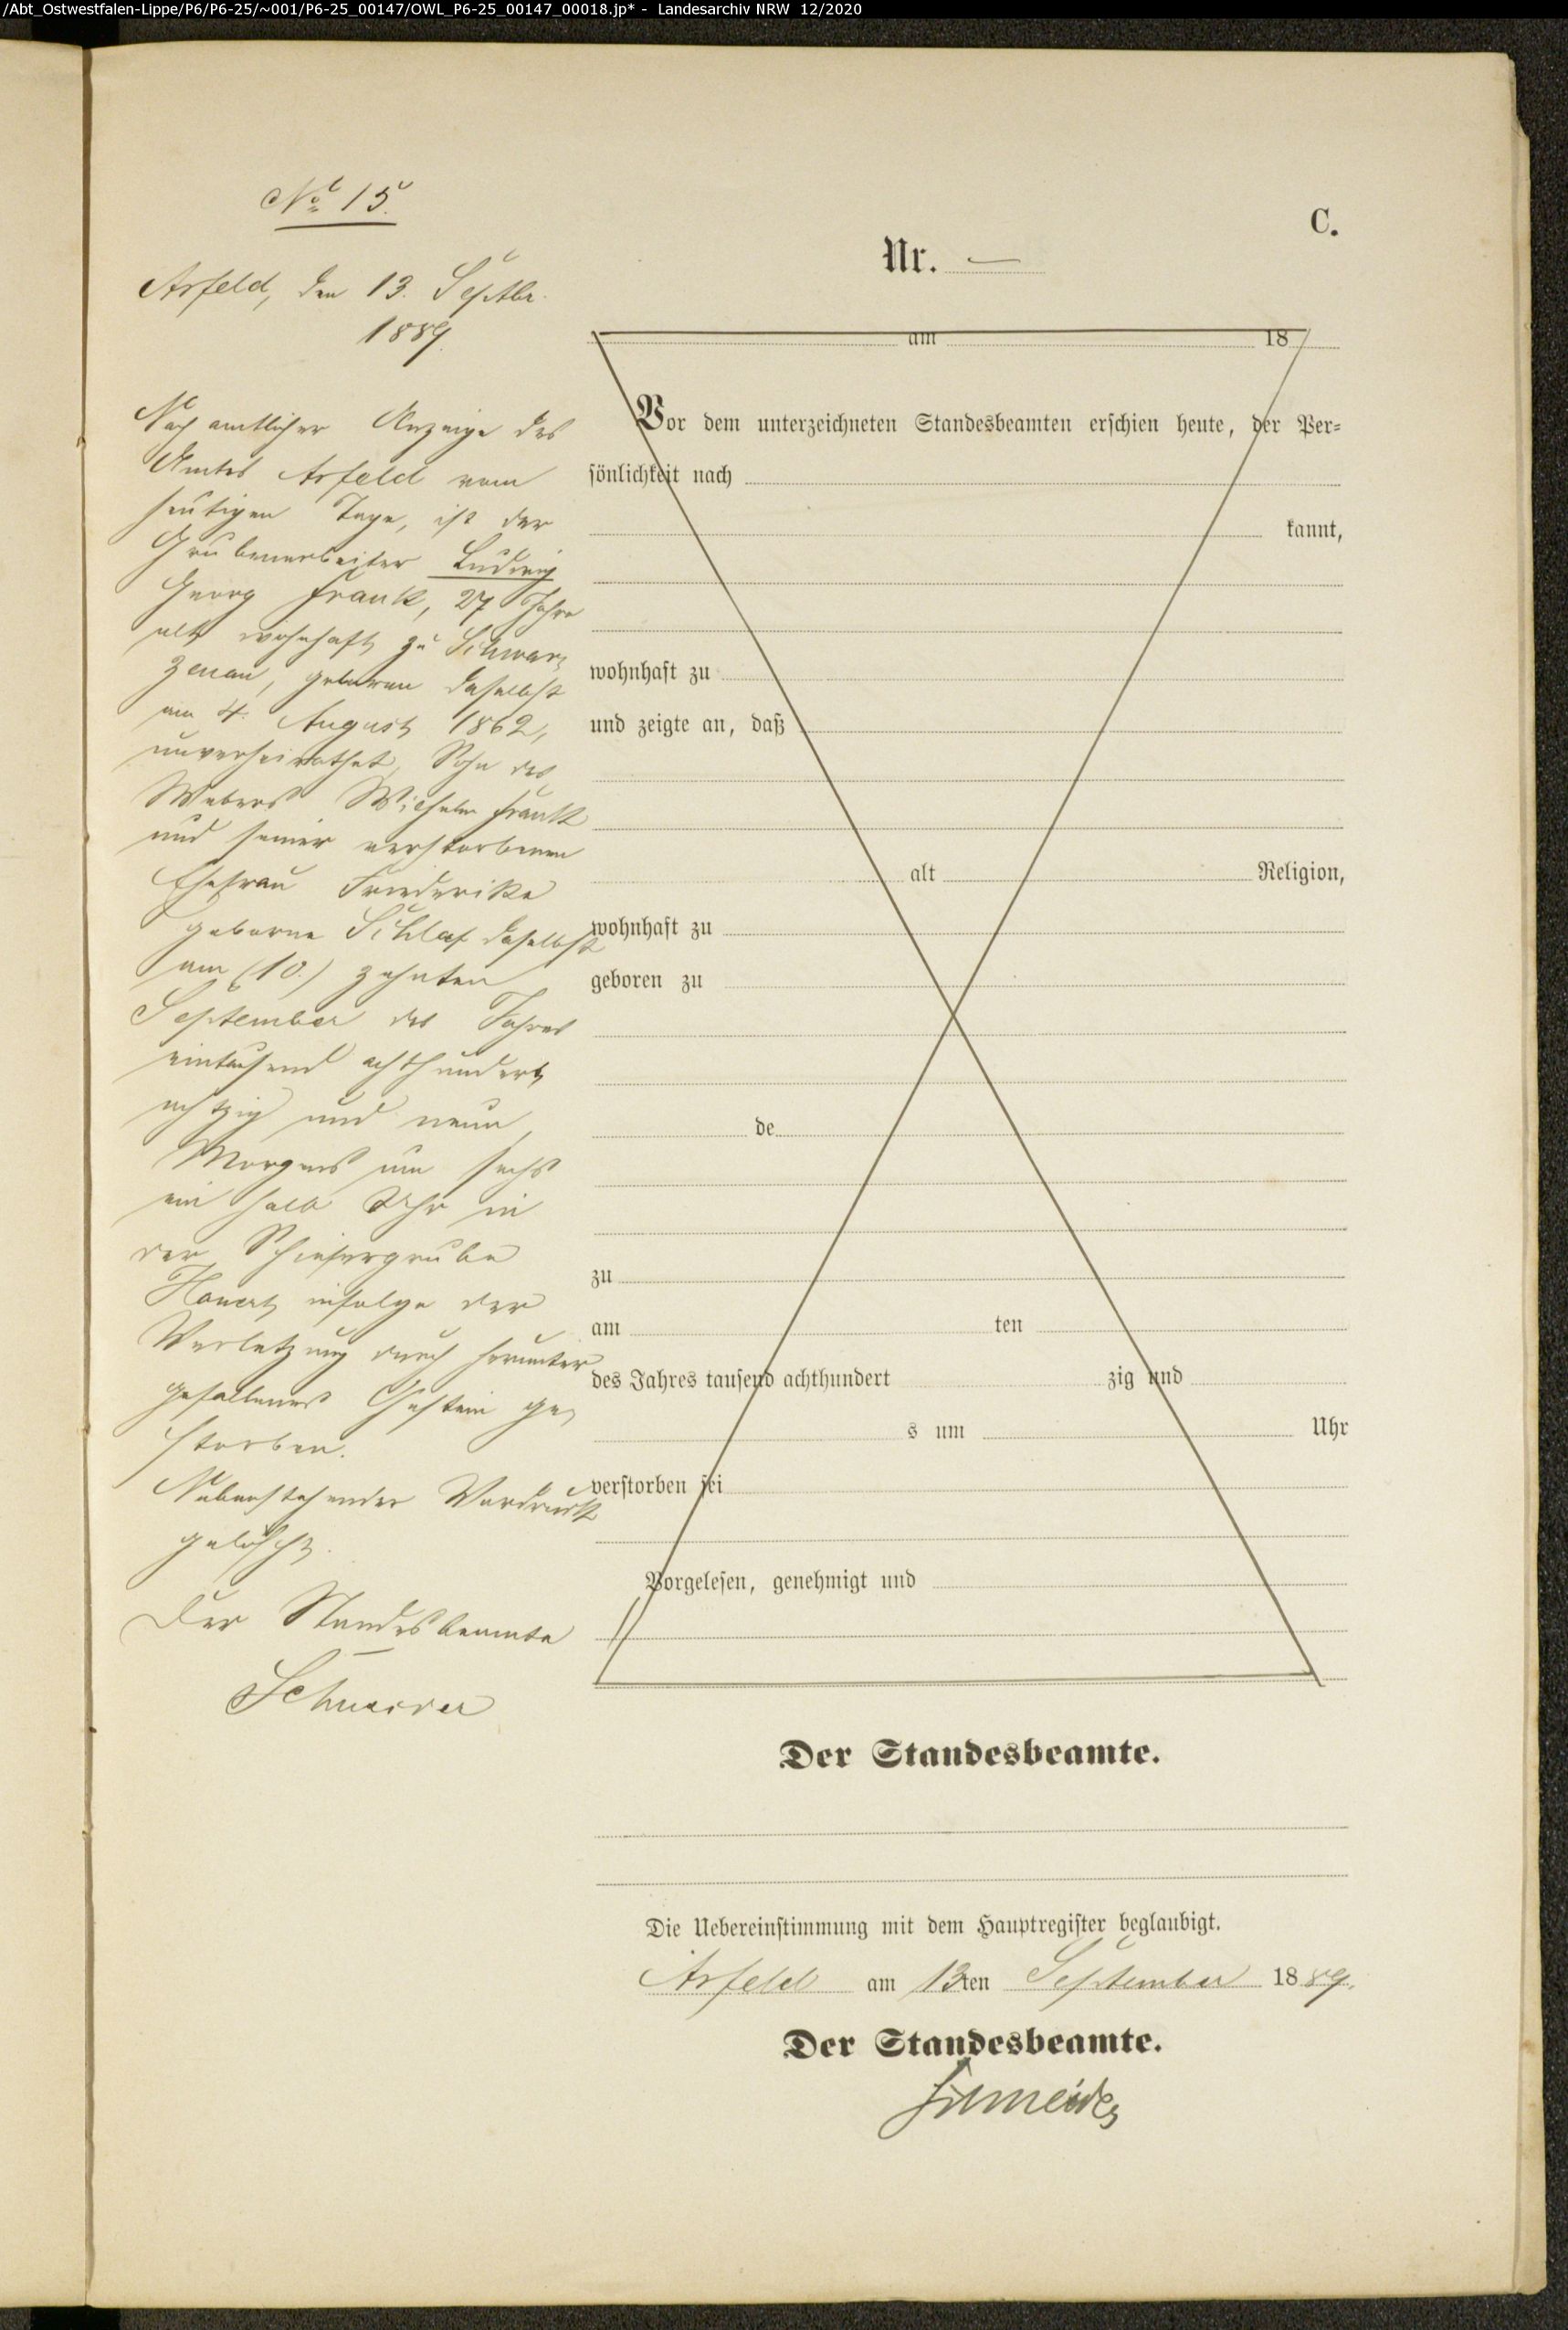 /Abt_Ostwestfalen-Lippe/P6/P6-25/~001/P6-25_00147/OWL_P6-25_00147_00018.jp* - Landesarchiv NRW 12/2020
No 15.
Arfeld, den 13. Septbr.
1889.
Nach amtlicher Anzeige des
Amtes Arfeld vom
heutigen Tage, ist der
Grubenarbeiter Ludwig
Georg Frank, 27 Jahre
alt wohnhaft zu Schwar
zenau, geboren daselbst
am 4. August 1862,
unverheirathet, Sohn des
Webers Wilhelm Frank
und seiner verstorbenen
Ehefrau Friederike
geborne Schlaf daselbst
am (10.) zehnten
September des Jahres
eintausend achthundert
achtzig und neun,
Morgens um sechs
ein halb Uhr in
der Schiefergrube
infolge der
Verletzung durch herunter
gefallenes Gestein ge
storben.
Nebenstehender Vordruck
gelöscht.
Der Standesbeamte
Schneider
C.
Nr. —
am 18
Vor dem unterzeichneten Standesbeamten erschien heute, der Per-
sönlichkeit nach
kannt,
wohnhaft zu
und zeigte an, daß
alt Religion,
wohnhaft zu
geboren zu
de
zu
am ten
des Jahres tausend achthundert zig und
s um Uhr
verstorben sei
Vorgelesen, genehmigt und
Der Standesbeamte.
Die Uebereinstimmung mit dem Hauptregister beglaubigt.
Arfeld am 13ten September 1889.
Der Standesbeamte.
Schneider